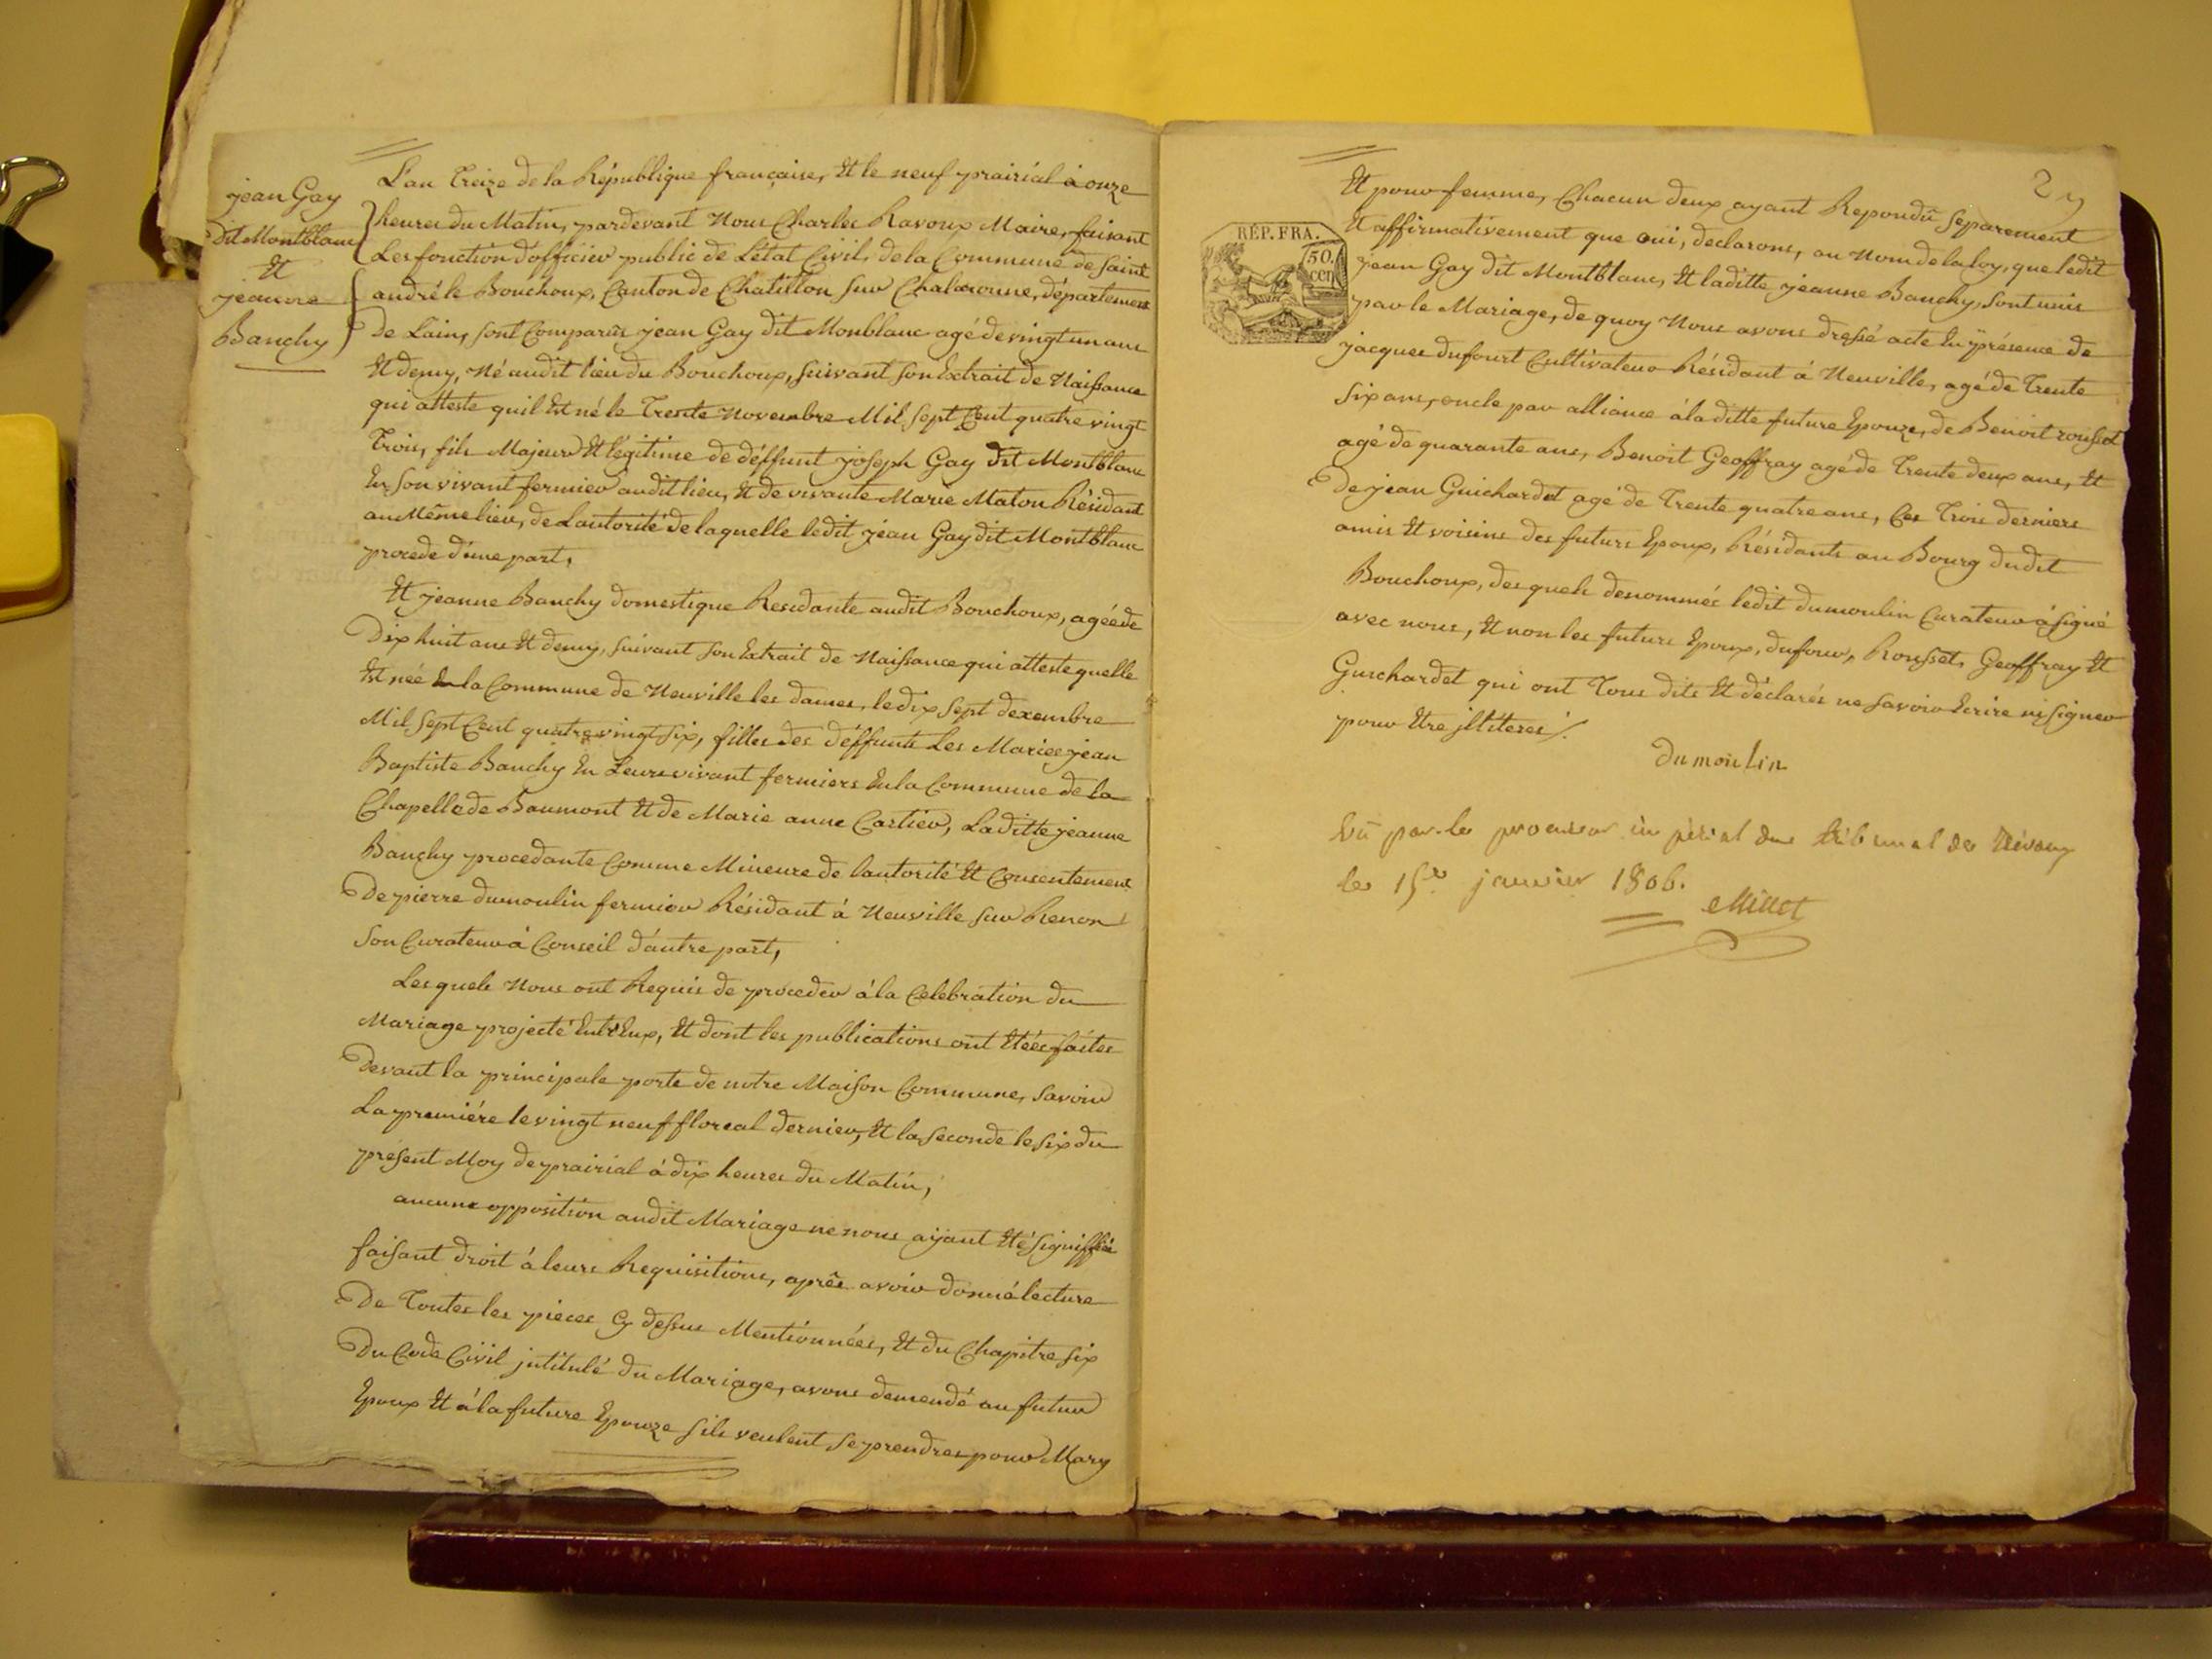 jean Gay
dit Montblanc
Et
jeanne
Banchy
L'an Treize de la République française, Et le neuf prairial à onze
heures du Matin, pardevant Nous Charles Ravoux Maire, faisant
Les fonction d'officier public de L'état Civil, de la Commune de Saint
andré le Bouchoux, Canton de Chatillon sur Chalaronne, département
De Lain, sont Comparûs jean Gay dit Monblanc agé de vingt un ans
Et demy, Né audit lieu du Bouchoux, suivant son Extrait de Naissance
qui atteste quil Est né le Trente Novembre Mil Sept Cent quatre vingt
Trois, fils Majeur Et légitime de déffunt joseph Gay dit Montblanc
En son vivant fermier audit lieu, Et de vivante Marie Maton Résidant
au Même lieu, de Lautorité de laquelle ledit jean Gay dit Montblanc
procede d'une part,
Et jeanne Banchy domestique Residante audit Bouchoux, agée de
Dix huit ans Et demy, suivant son Extrait de Naissance qui atteste quelle
Est née En la Commune de Neuville les dames, le dix sept dexembre
Mil Sept Cent quatre vingt six, filles des déffunts Les Mariés jean
Baptiste Banchy En Leurs vivant fermiers En la Commune de la
Chapelle de Baumont Et de Marie anne Cartier, Laditte jeanne
Banchy procedante Comme Mineure de lautorité Et Consentement
De pierre dumoulin fermier Résidant à Neuville sur Renon
Son Curateur à Conseil d'autre part,
Lesquels Nous ont Requis de proceder à la Celebration du
Mariage projecté Entr'Eux, Et dont les publications ont Etées faites
Devant la principale porte de notre Maison Commune, Savoir
La première le vingt neuf floreal dernier, Et la seconde le six du
présent Moy de prairial à dix heures du Matin,
aucune opposition audit Mariage ne nous aÿant Eté signiffiée
faisant droit à leurs Requisitions, après avoir donné lecture
De Toutes les pieces Cy dessus Mentionnées, Et du Chapitre six
Du Code Civil jntitulé du Mariage, avons demendé au futur
Epoux Et à la future Epouze sils veulent se prendres pour Mary
2
RÉP. FRA.
50.
cen
Et pour femme, Chacun deux ayant Repondû Separement
Et affirmativement que oui, declarons, au Nom de la loy, que ledit
jean Gay dit Montblanc, Et laditte jeanne Banchy, sont unis
par le Mariage, de quoy Nous avons dressé acte En présence de
jacques dufourt Cultivateur Résidant à Neuville, agé de Trente
Six ans, oncle par alliance à laditte future Epouze, de Benoit rousset
agé de quarante ans, Benoit Geoffray agé de Trente deux ans, Et
De jean Guichardet agé de Trente quatre ans, Ces Trois derniers
amis Et voisins des futurs Epoux, Résidants au Bourg dudit
Bouchoux, desquels denommés ledit dumoulin Curateur à signé
avec nous, Et non les futurs Epoux, dufour, Rousset, Geoffray Et
Guichardet qui ont Tous dits Et déclarés ne savoir Ecrire ni signer
pour Etre jlliteres ./.
dumoulin
Vû par le procureur impérial du tribunal de Trévoux
le 15 janvier 1806.
Millet